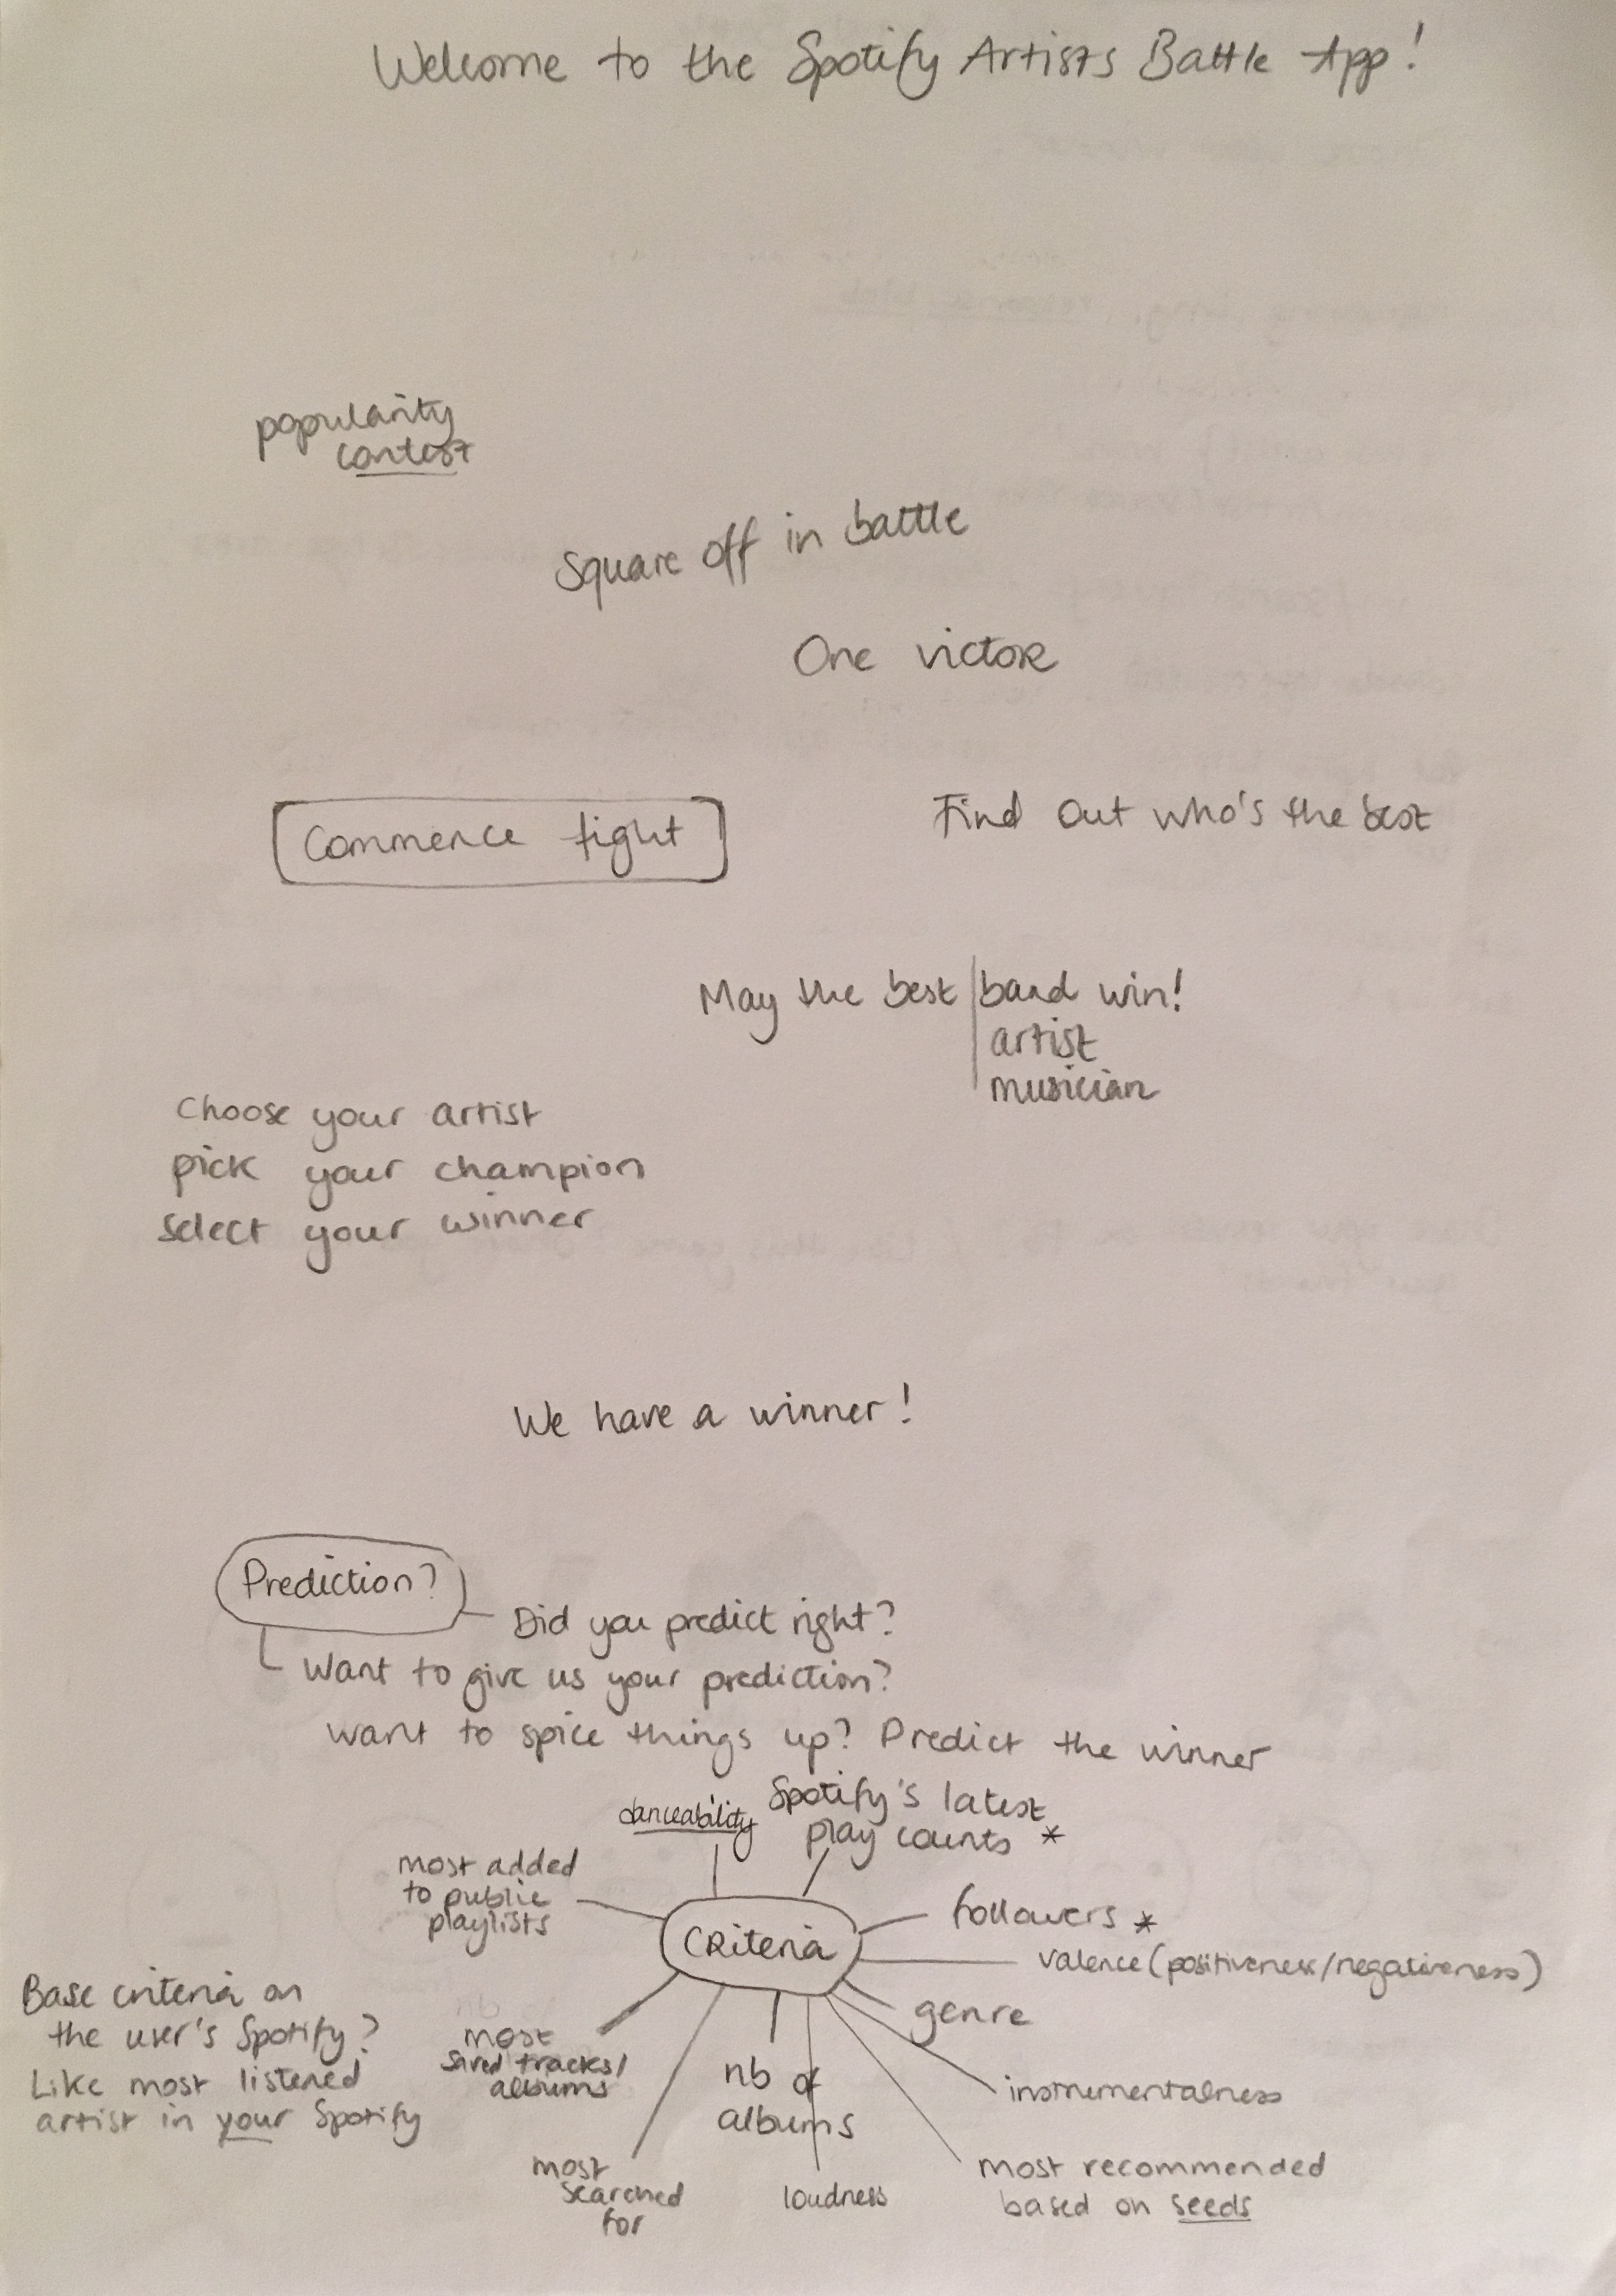 Welcome to the Spotify Artists Battle App!
popularity
contest
Square off in battle
One victor
Commence fight
Find Out who's the best
May the best band win!
artist
musician
Choose your artist
pick your champion
select your winner
We have a winner!
Prediction?
Did you predict right?
Want to give us your prediction?
want to spice things up? Predict the winner
danceability
Spotify's latest
play counts *
most added
to public
playlists
Criteria
followers *
valence (positiveness/negativeness)
genre
instrumentalness
most recommended
based on seeds
loudness
nb of
albums
most
searched
for
most
saved tracks/
albums
Base criteria on
the user's Spotify?
Like most listened
artist in your Spotify